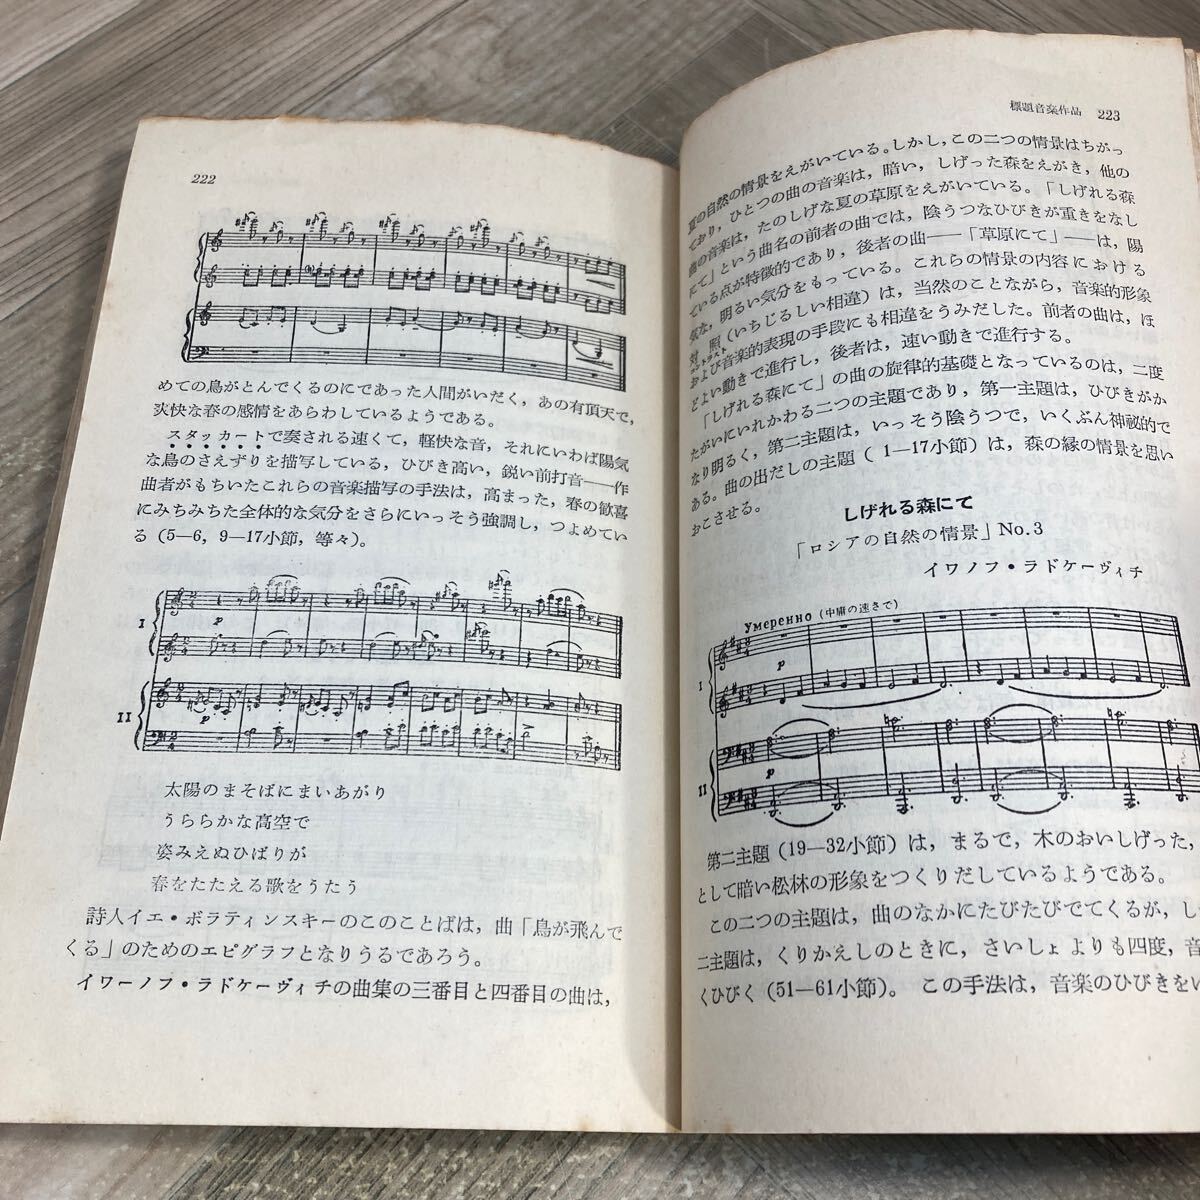 222
めての鳥がとんでくるのにであった人間がいだく，あの有頂天で，
爽快な春の感情をあらわしているようである。
スタッカートで奏される速くて，軽快な音，それにいわば陽気
な鳥のさえずりを描写している，ひびき高い，鋭い前打音――作
曲者がもちいたこれらの音楽描写の手法は，高まった，春の歓喜
にみちみちた全体的な気分をさらにいっそう強調し，つよめてい
る（5—6，9—17小節，等々）。
I
p
II
p
太陽のまそばにまいあがり
うららかな高空で
姿みえぬひばりが
春をたたえる歌をうたう
詩人イエ・ボラティンスキーのこのことばは，曲「鳥が飛んで
くる」のためのエピグラフとなりうるであろう。
イワーノフ・ラドケーヴィチの曲集の三番目と四番目の曲は，
標題音楽作品 223
夏の自然の情景をえがいている。しかし，この二つの情景はちがっ
ており，ひとつの曲の音楽は，暗い，しげった森をえがき，他の
曲の音楽は，たのしげな夏の草原をえがいている。「しげれる森
にて」という曲名の前者の曲では，陰うつなひびきが重きをなし
ている点が特徴的であり，後者の曲――「草原にて」――は，陽
気な，明るい気分をもっている。これらの情景の内容における
対照（いちじるしい相違）は，当然のことながら，音楽的形象
コントラスト
および音楽的表現の手段にも相違をうみだした。前者の曲は，ほ
どよい動きで進行し，後者は，速い動きで進行する。
「しげれる森にて」の曲の旋律的基礎となっているのは，二度
たがいにいれかわる二つの主題であり，第一主題は，ひびきがか
なり明るく，第二主題は，いっそう陰うつで，いくぶん神祕的で
ある。曲の出だしの主題（1—17小節）は，森の縁の情景を思い
おこさせる。
しげれる森にて
「ロシアの自然の情景」No.3
イワノフ・ラドケーヴィチ
Умеренно（中庸の速さで）
I
p
II
p
第二主題（19—32小節）は，まるで，木のおいしげった，
として暗い松林の形象をつくりだしているようである。
この二つの主題は，曲のなかにたびたびでてくるが，し
二主題は，くりかえしのときに，さいしょよりも四度，音
くひびく（51—61小節）。この手法は，音楽のひびきをい